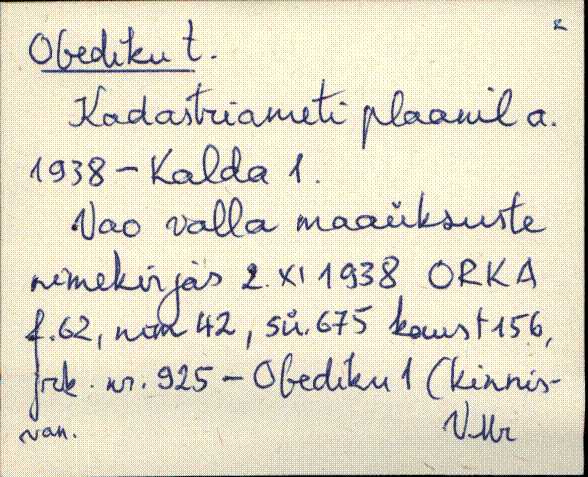 Obediku t.
Kadastriameti plaanil a.
1938 – Kalda 1.
Vao valla maaüksuste
nimekirjas 2. XI 1938 ORKA
f. 62, nim 42, sü. 675 kaust 156,
jrk. nr. 925 – Obediku 1 (kinnis-
van.